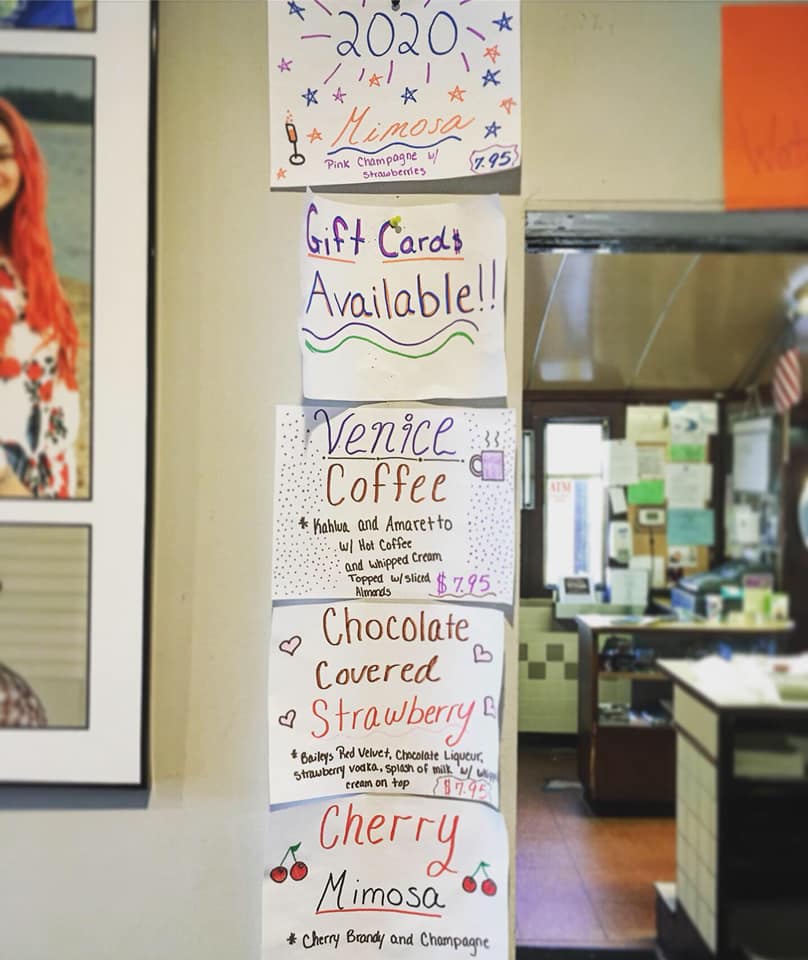 2020
Mimosa
Pink Champagne w/
Strawberries
7.95
Gift Cards
Available!!
Venice
Coffee
* Kahlua and Amaretto
w/ Hot Coffee
and Whipped Cream
Topped w/ Sliced
Almonds
$7.95
Chocolate
Covered
Strawberry
* Baileys Red Velvet, Chocolate Liqueur,
Strawberry vodka, splash of milk w/ whipp
cream on top
$7.95
Cherry
Mimosa
* Cherry Brandy and Champagne
ATM